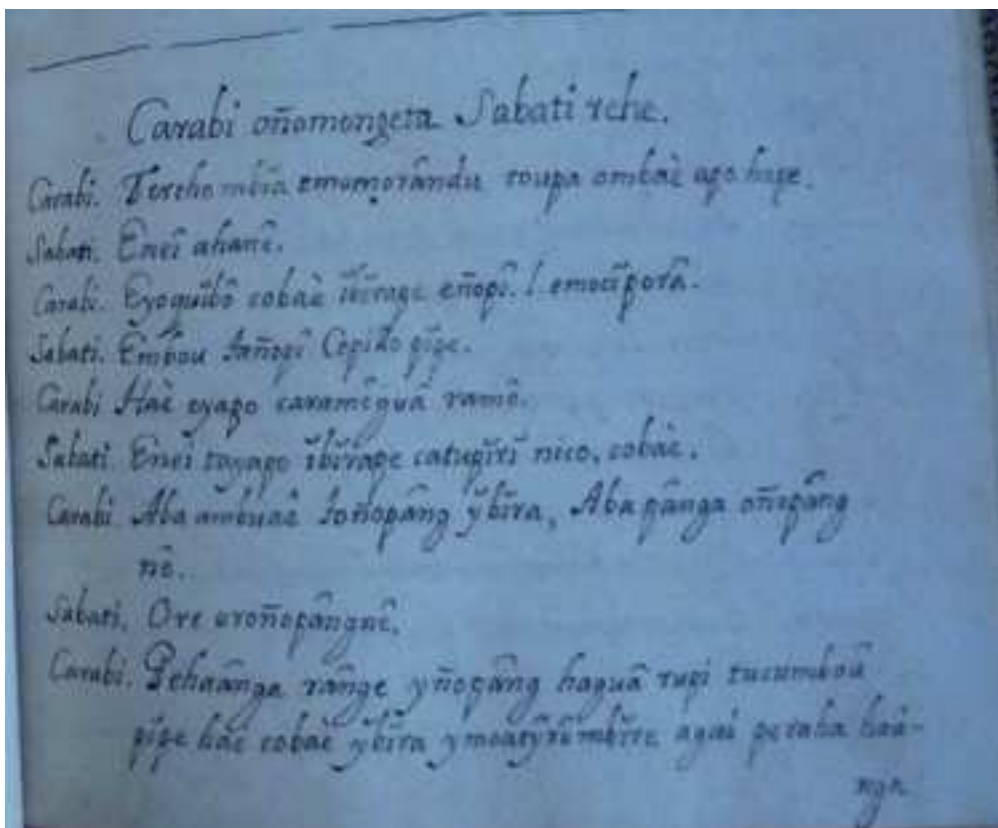 Carabi oñomongeta Sabati rehe.
Carabi. Tereho mbîa emomorându toupa ombaè apo hape.
Sabati. Eneî ahanê.
Carabi. Eyoquîbô cobaè ĭbĭrape eñopî. l. emocîporâ.
Sabati. Embou tañopî Cepillo pĭpe.
Carabi Haè eyapo caramêguâ ramô.
Sabati. Eneî tayapo ĭbĭrape catupĭrĭ nico, cobaè.
Carabi Aba ambuaè toñopâng ybĭra, Aba pânga oñopâng
nê.
Sabati. Ore oroñopângnê.
Carabi. Pehaânga rânge yñopâng haguâ rupi tucumboû
pĭpe haè cobaè ybĭra ymoatyrômbĭre apai peraha haâ-
nga